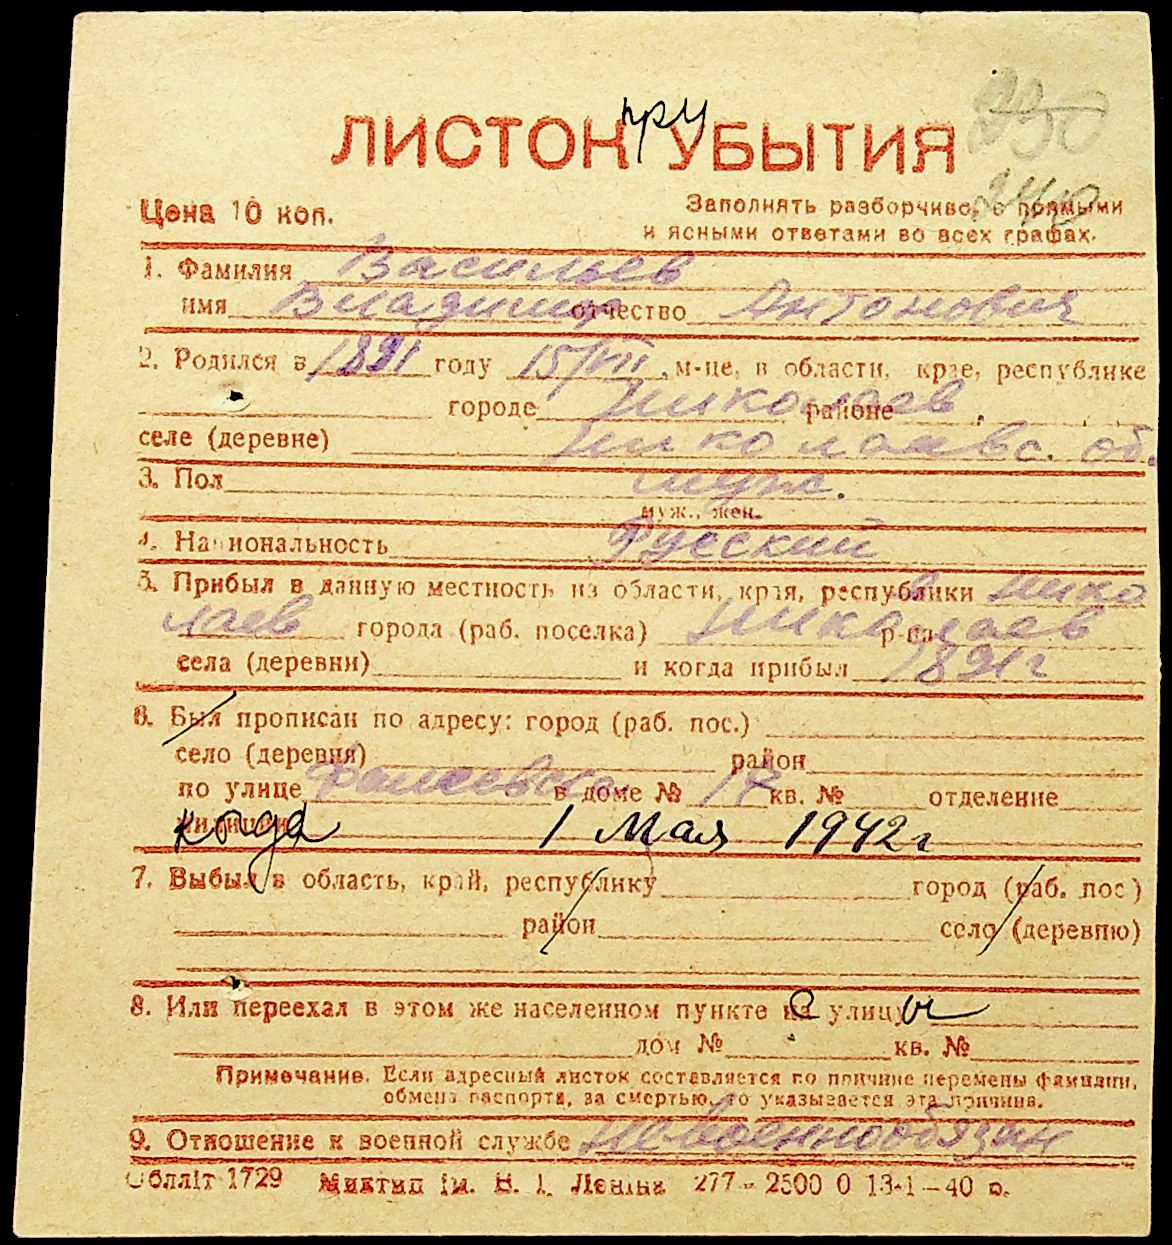 при
ЛИСТОК УБЫТИЯ
Цена 10 коп.
Заполнять разборчиво, с прямыми
и ясными ответами во всех графах.
1. Фамилия Васильев
имя Владимир отчество Антонович
2. Родился в 1891 году 15/VII м-це, в области, крае, республике
городе Николаев районе
селе (деревне) Николаевс. об.
3. Пол муж.
муж., жен.
4. Национальность Русский
5. Прибыл в данную местность из области, края, республики Нико
лаев города (раб. поселка) Николаев р-на
села (деревни) и когда прибыл 1891 г
6. Был прописан по адресу: город (раб. пос.)
село (деревня) район
по улице Фалеевская в доме № 17 кв. № отделение
милиции когда 1 Мая 1942 г
7. Выбыл в область, край, республику город (раб. пос)
район село (деревню)
8. Или переехал в этом же населенном пункте с улицы
дом № кв. №
Примечание. Если адресный листок составляется по причине перемены фамилии,
обмена паспорта, за смертью, то указывается эта причина.
9. Отношение к военной службе Невоеннообязан
Обліт 1729 Миктип ім. В. І. Леніна 277 - 2500 0 13-1-40 р.